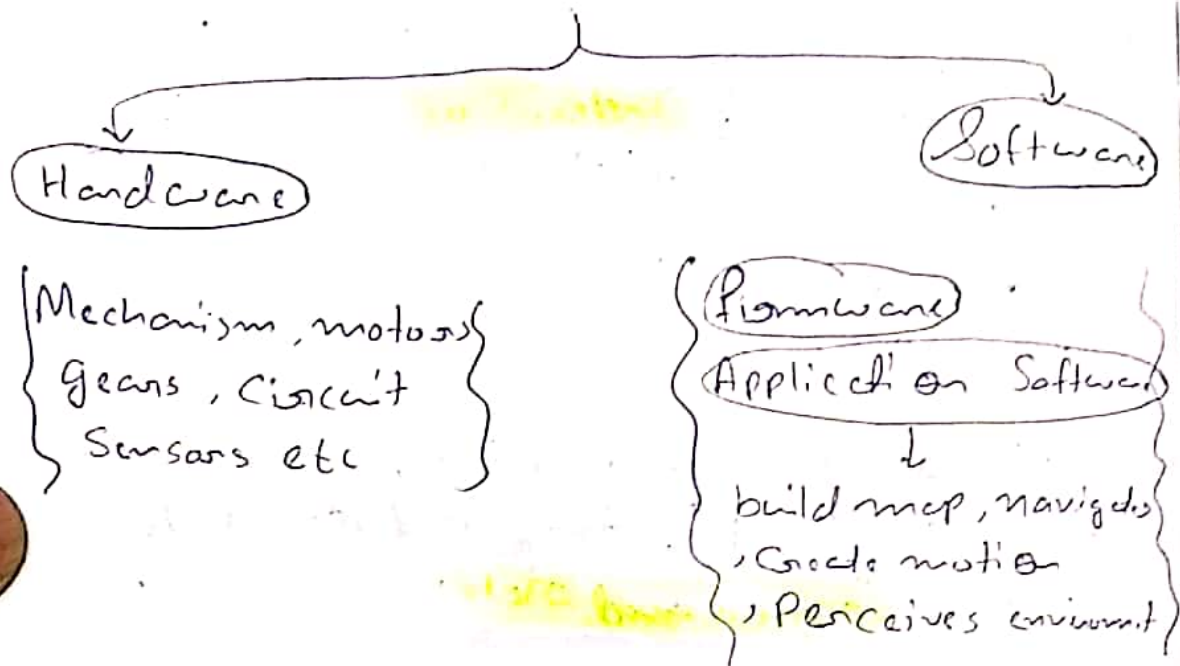 Hardware
Software
Mechanism, motors
gears, Circuit
Sensors etc
Firmware
Application Software
build map, navigates
, Create motion
, Perceives enviroment